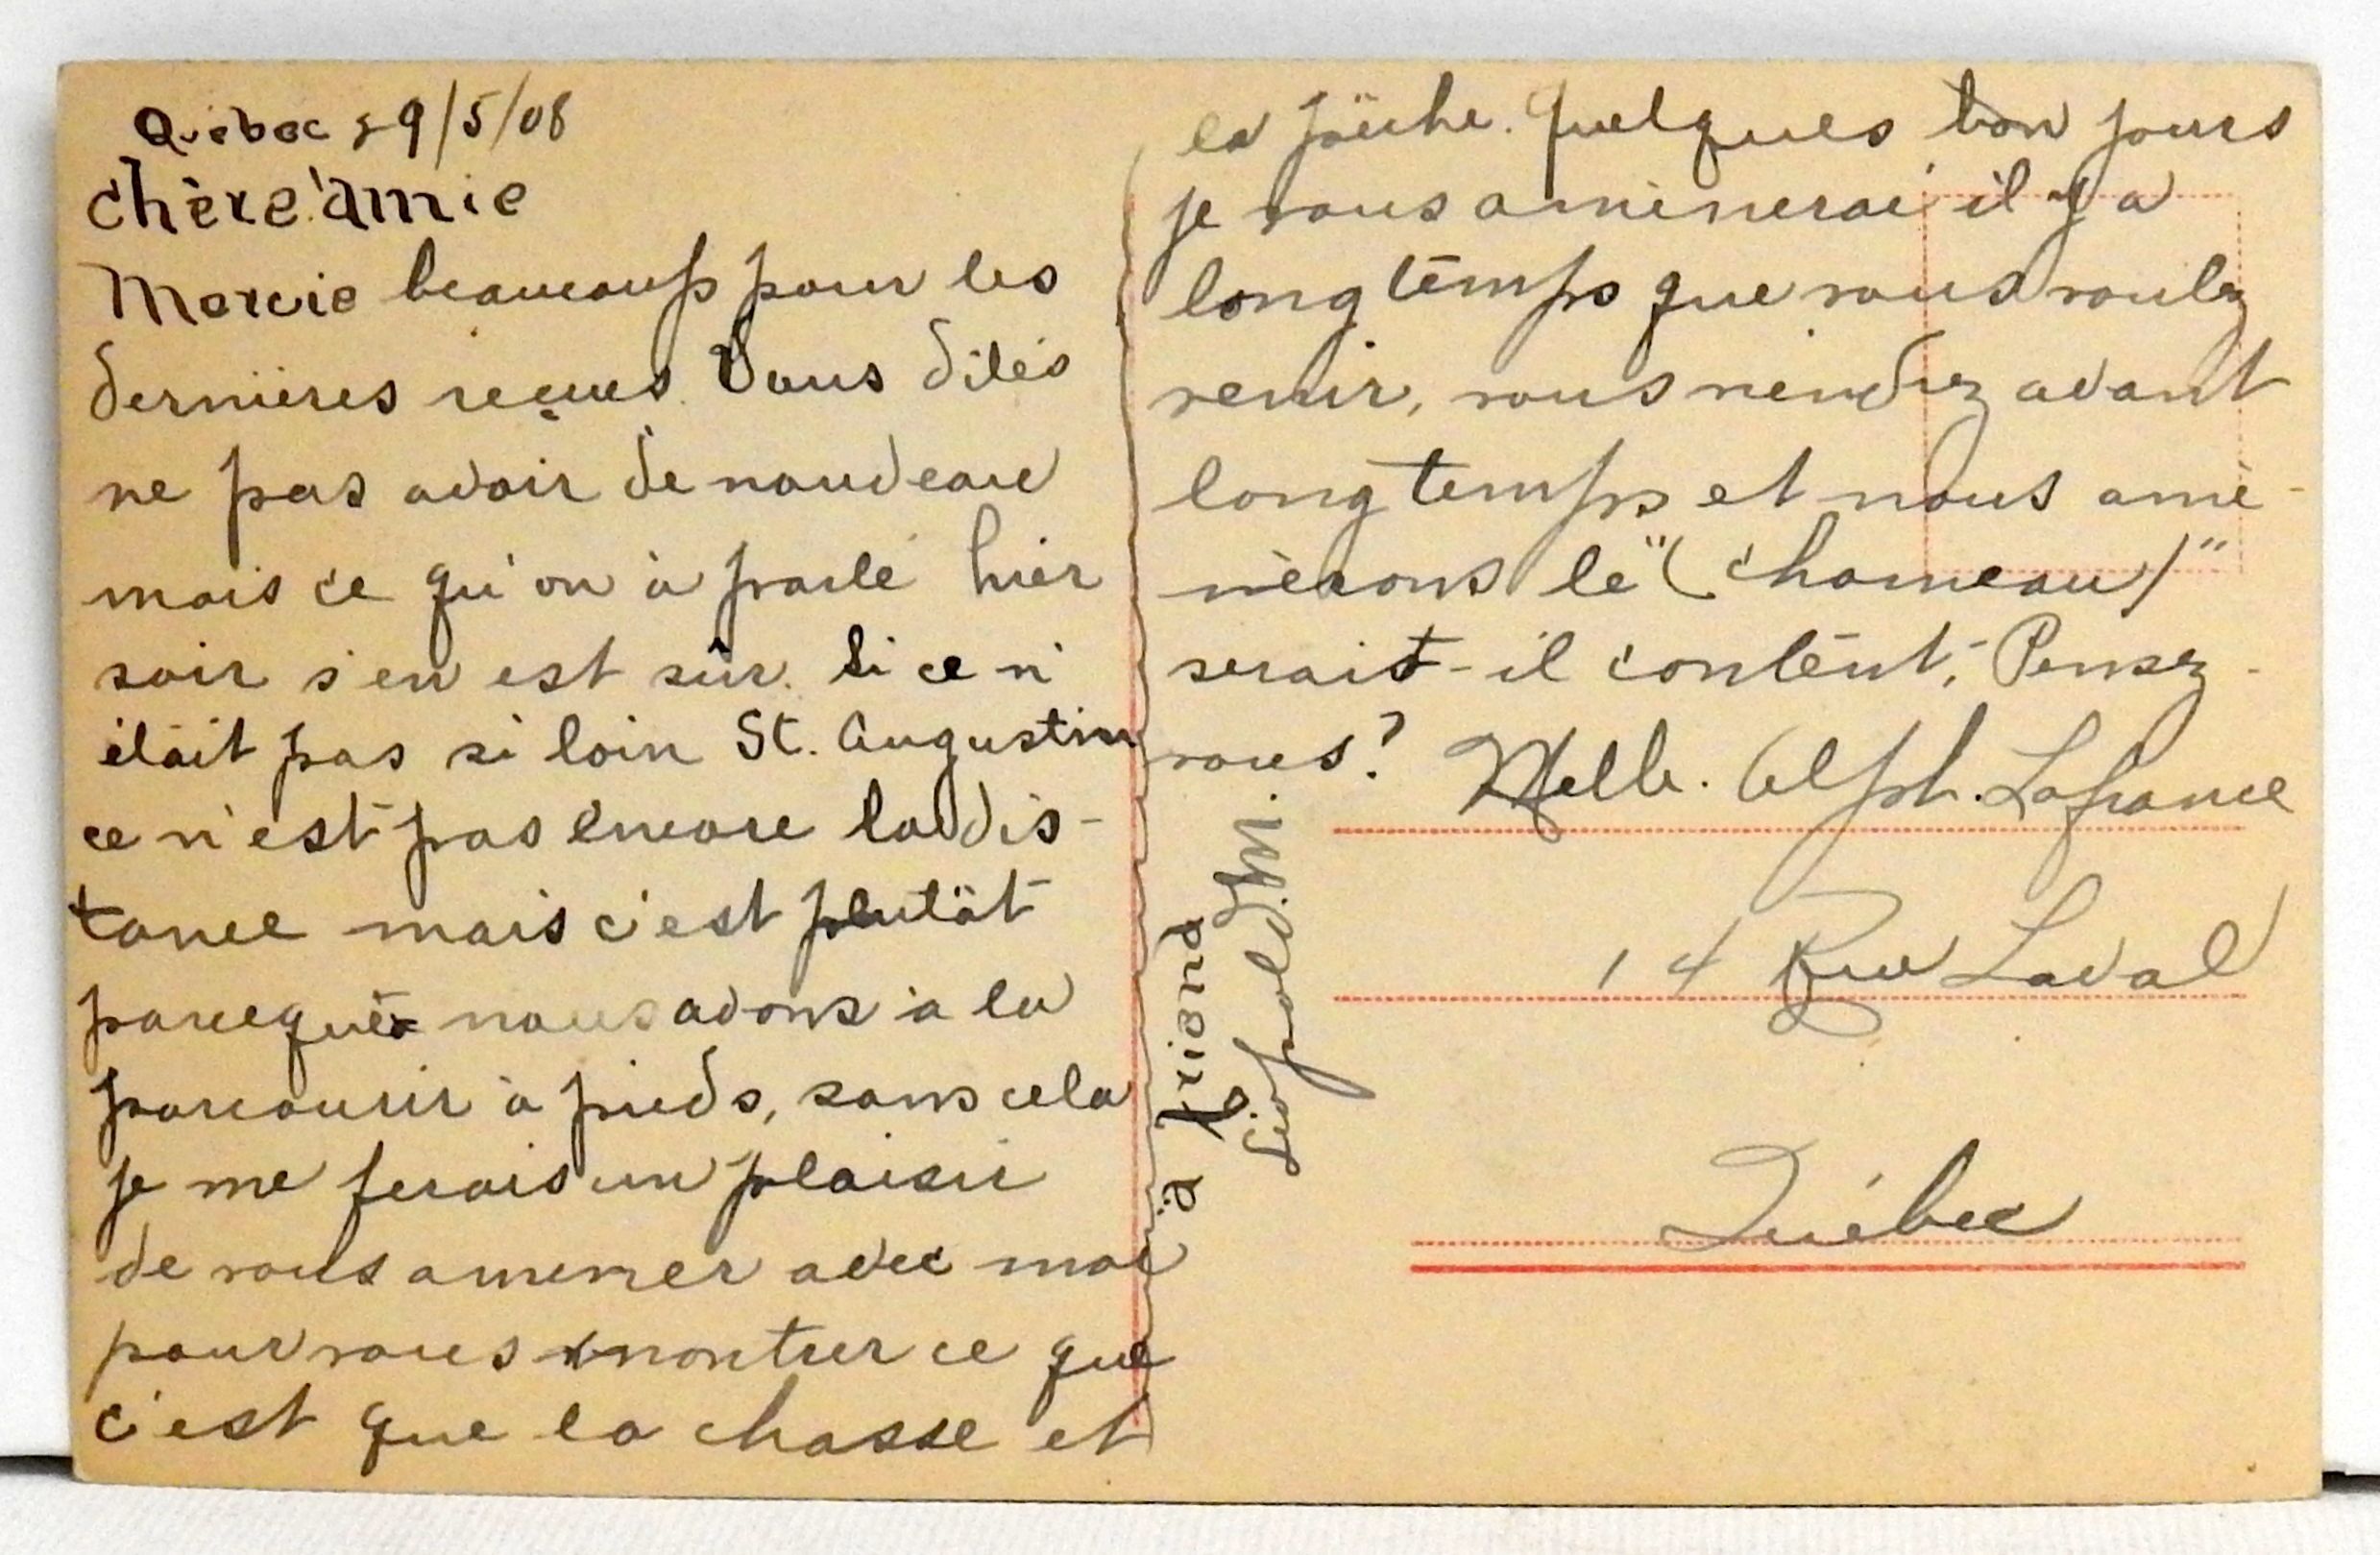 Québec 29/5/08
chère amie
Mercie beaucoup pour les
dernières reçues. Vous dites
ne pas avoir de nouveau
mais ce qu'on à parlé hier
soir s'en est sûr. Si ce n'
était pas si loin St. Augustin
ce n'est pas encore la dis-
tance mais c'est plutôt
parceque nous avons à la
parcourir à pieds, sans cela
je me ferais un plaisir
de vous amener avec moi
pour vous montrer ce que
c'est que la chasse et
la pêche. Quelques bon jours
je vous amènerai il y a
longtemps que vous voulez
venir, vous viendrez avant
longtemps et nous amè-
nèrons le "(chameau)"
serait-il content, Pensez-
vous?
à
Léopold. M.
Melle. Alph. Lafrance
14 Rue Laval
Québec